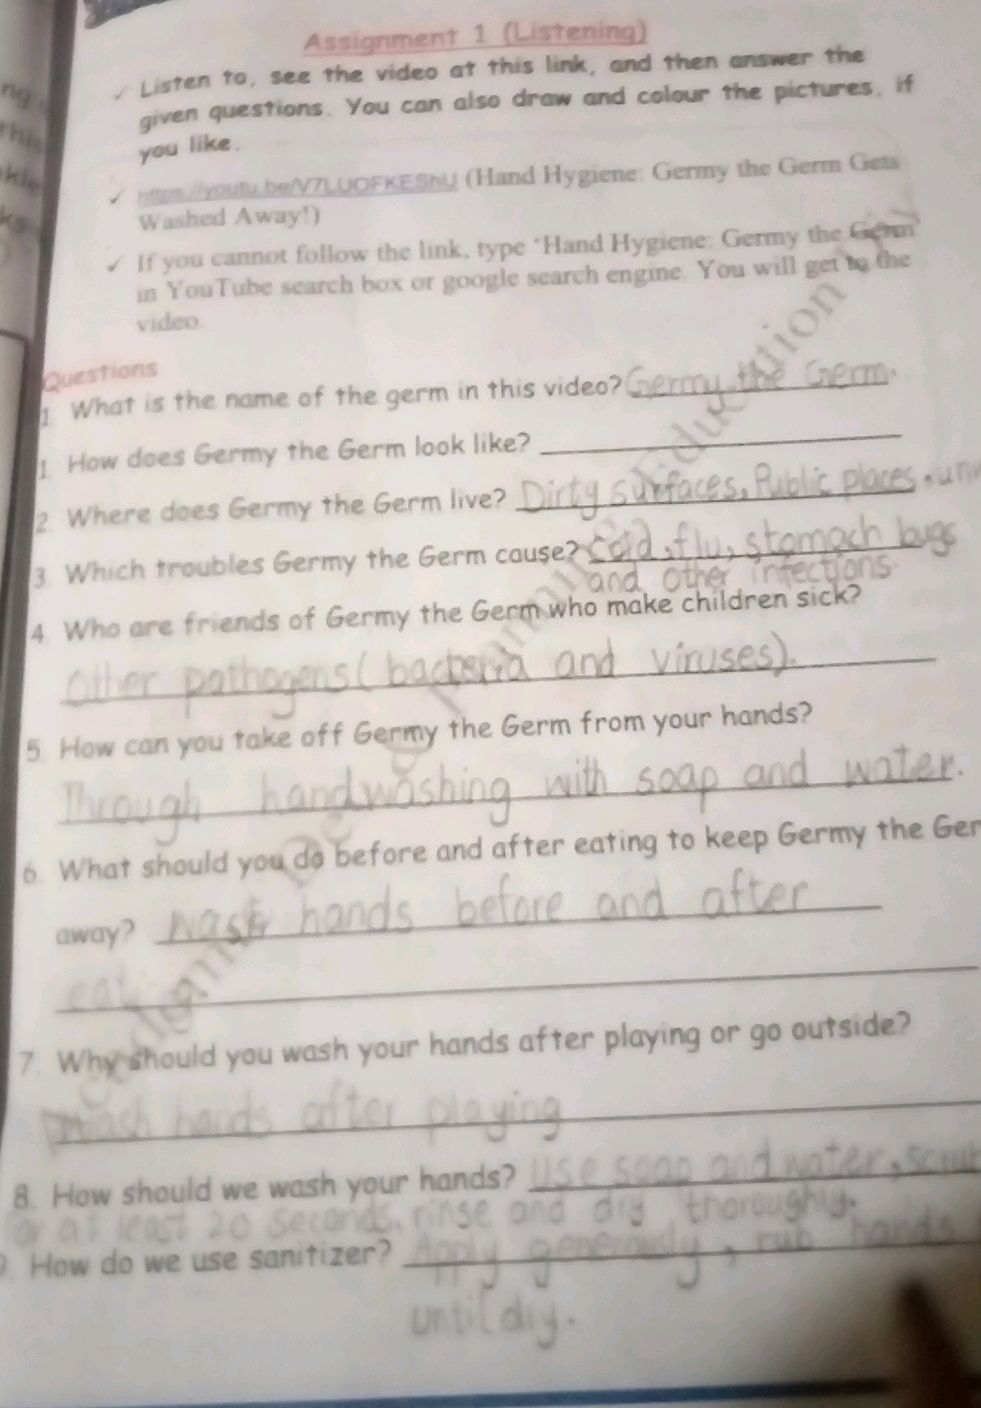 Assignment 1 (Listening)
✓ Listen to, see the video at this link, and then answer the
given questions. You can also draw and colour the pictures, if
you like.
✓ https://youtu.be/V7LUOFKEShU (Hand Hygiene: Germy the Germ Gets
Washed Away!)
✓ If you cannot follow the link, type "Hand Hygiene: Germy the Germ
in YouTube search box or google search engine. You will get to the
video.
Questions
1. What is the name of the germ in this video? Germy the Germ.
1. How does Germy the Germ look like?
2. Where does Germy the Germ live? Dirty surfaces, Public places,
3. Which troubles Germy the Germ cause? Cold, flu, stomach bugs
and other infections.
4. Who are friends of Germy the Germ who make children sick?
Other pathogens (bacteria and viruses).
5. How can you take off Germy the Germ from your hands?
Through handwashing with soap and water.
6. What should you do before and after eating to keep Germy the Ger
away? wash hands before and after
7. Why should you wash your hands after playing or go outside?
wash hands after playing
8. How should we wash your hands? Use soap and water, scrub
for at least 20 seconds, rinse and dry thoroughly.
9. How do we use sanitizer? Apply generously, rub hands
until dry.